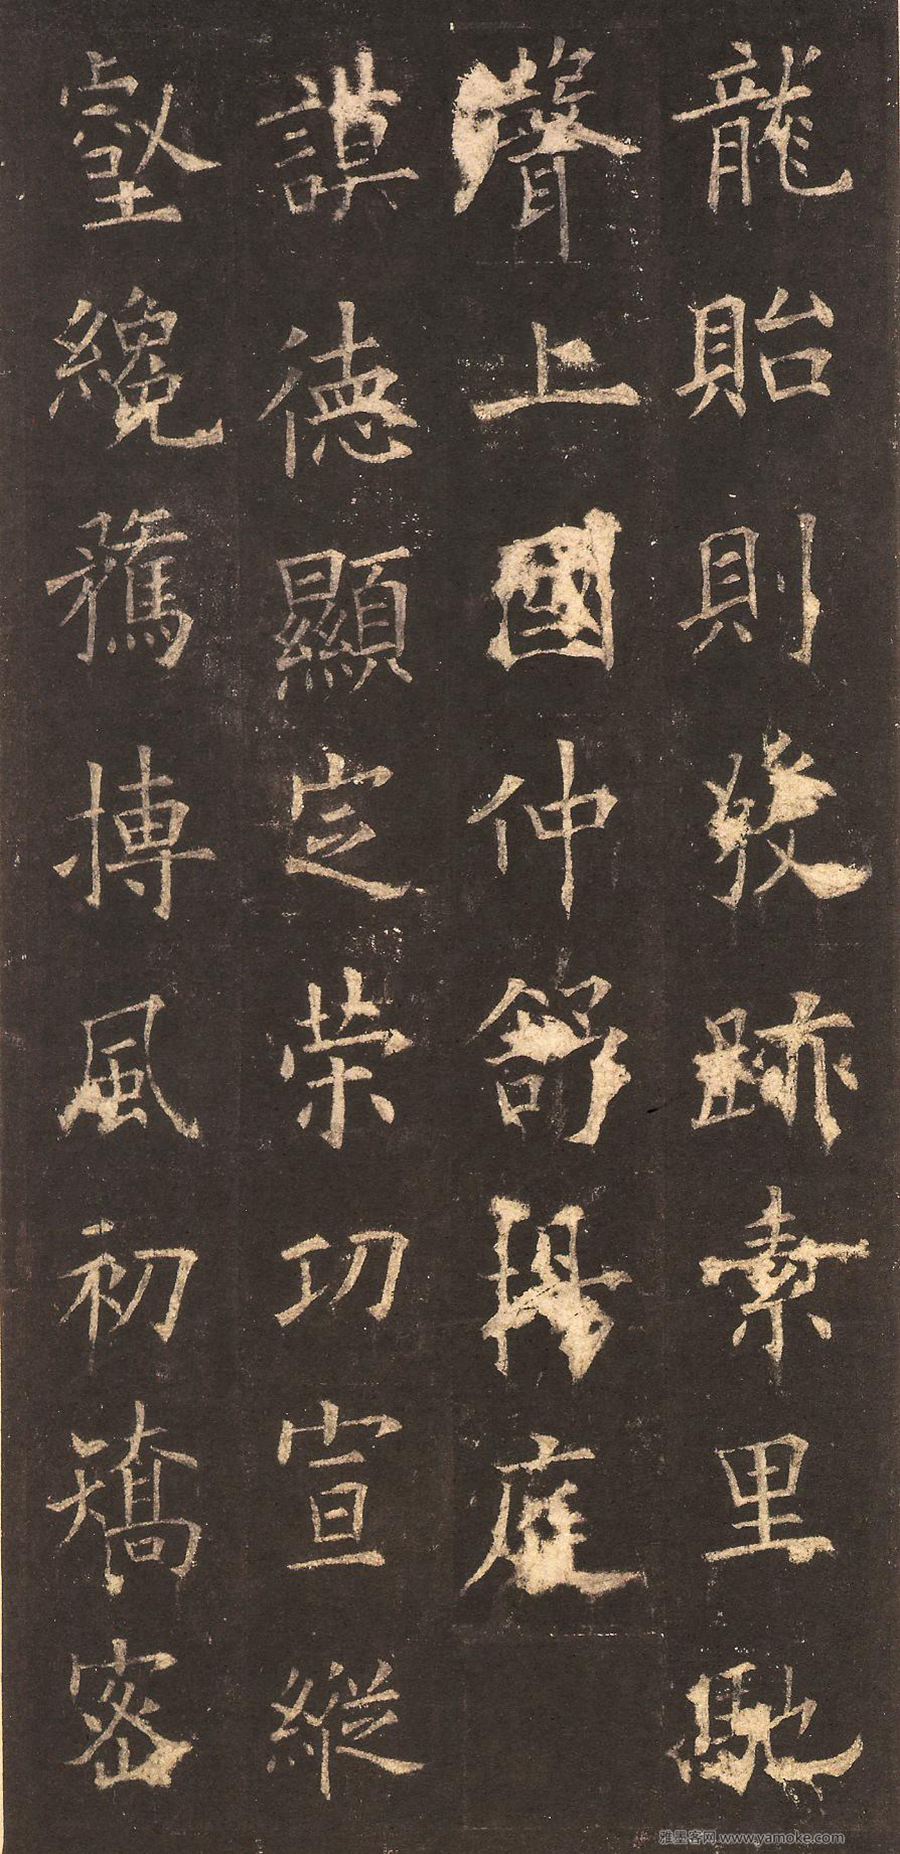 龍貽則發跡素里馳
聲上國仲舒陽庭
謨德顯定榮功宣縱
壑纔鶱摶風初矯密
雅墨客网 www.yamoke.com